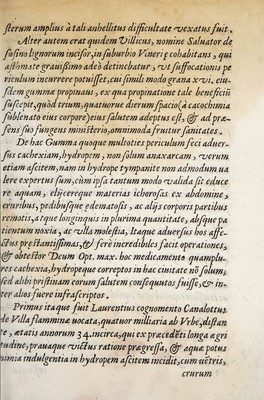 sterum amplius à tali anhellitus difficultate vexatus fuit.
Alter autem erat quidem Villicus, nomine Saluator de
fusino lignorum incisor, in suburbio Vineriç cohabitans, qui
asthmate grauissimo adeò detinebatur, vt suffocationis pe
riculum incurrere potuisset, cui simili modo grana xvi. eius
dem gummæ propinaui, ex qua propinatione tale beneficiũ
suscepit, quòd trium, quatuorue dierum spacio(à cacochimia
subleuato eius corpore)eius salutem adeptus est, & ad præ=
sens suo fungens ministerio, omnimoda fruitur sanitate.
De hac Gumma quoque multoties periculum feci aduer=
sus cachexiam, hydropem, non solum anaxarcam, verum
etiam ascitem, nam in hydrope tympanite non admodum ua
lere expertus sum, cùm ipsa tantum modo valida sit educe
re aquam, eliÿcereque materias ichorosas ex abdomine,
cruribus, pedibusque edematosis, ac alÿs corporis partibus
remotis, atque longinquis in plurima quantitate, absque pa
tientum noxia, ac vlla molestia. Itaque aduersus hos affe=
ctus prestantissimas, & ferè incredibiles facit operationes,
& obtestor Deum Opt. max. hoc medicamento quamplu=
res cachexia, hydropeque correptos in hac ciuitate nõ solum,
sed alibi pristinam eorum salutem consequutos fuisse, & in=
ter alios fuere infrascriptos.
Primus itaque fuit Laurentius cognomento Canalottus
de Villa flamminæ uocata, quatuor milliaria ab Vrbe, distan
te, ætatis annorum 34. incirca, qui ex præcedẽti longa ægri
tudine, prauaque victus ratione prægressa, & aquæ potus
nimia indulgentia in hydropem ascitem incidit, cum uẽtris,
crurum